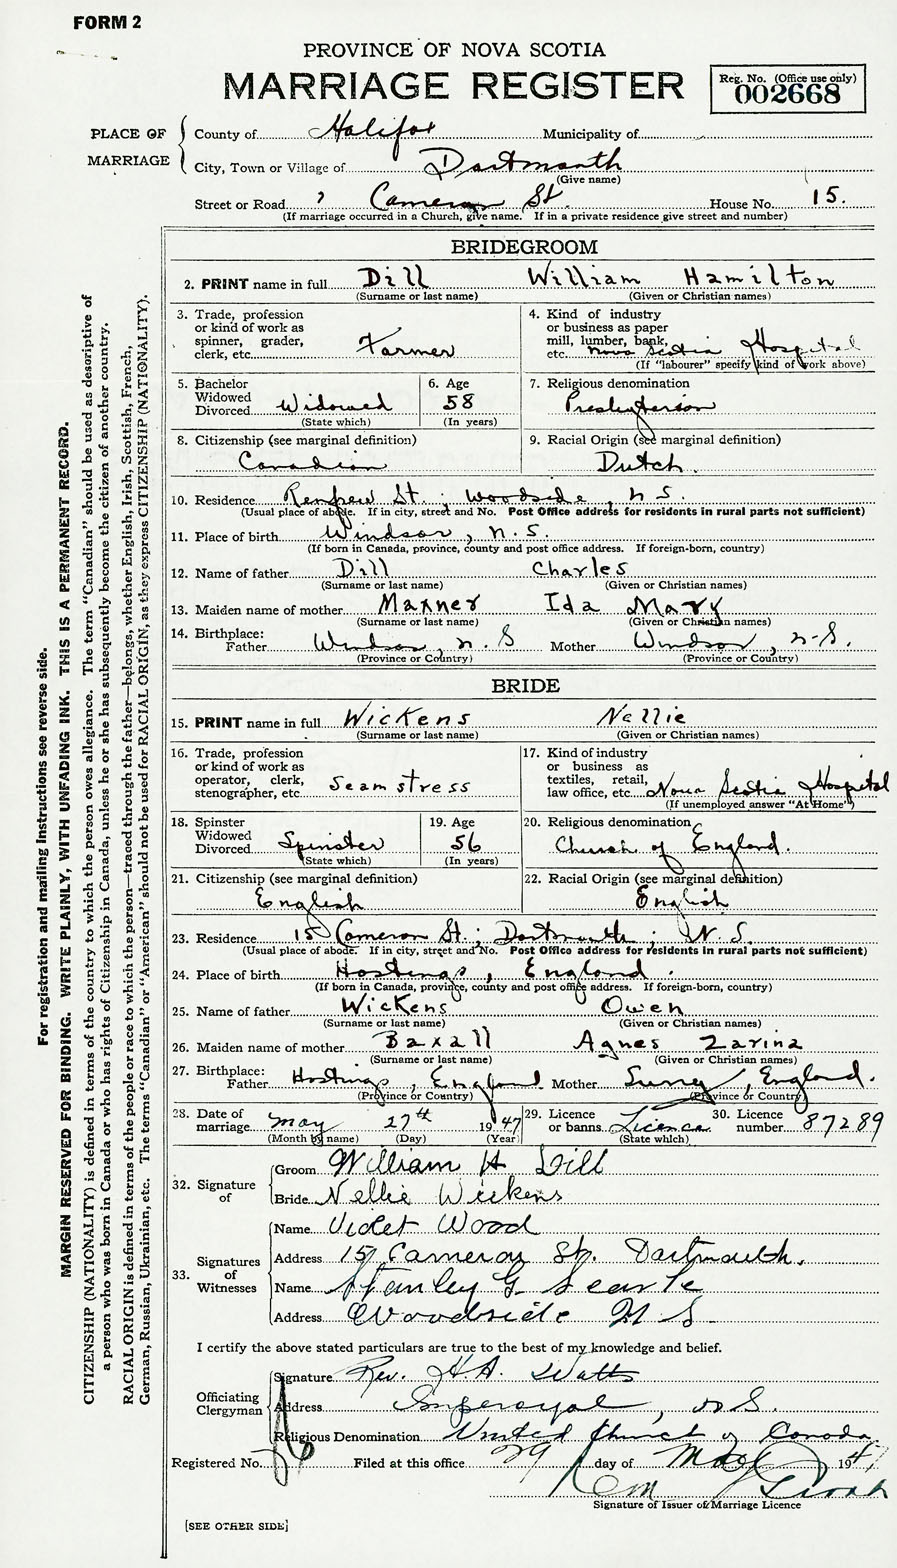 FORM 2
PROVINCE OF NOVA SCOTIA
MARRIAGE REGISTER
Reg. No. (Office use only)
002668
PLACE OF MARRIAGE
County of Halifax Municipality of
City, Town or Village of Dartmouth
(Give name)
Street or Road Cameron St. House No. 15.
(If marriage occurred in a Church, give name. If in a private residence give street and number)
BRIDEGROOM
2. PRINT name in full Dill William Hamilton
(Surname or last name) (Given or Christian names)
3. Trade, profession or kind of work as spinner, grader, clerk, etc. Farmer
4. Kind of industry or business as paper mill, lumber, bank, etc. Nova Scotia Hospital
(If "labourer" specify kind of work above)
5. Bachelor Widowed Divorced Widowed
(State which)
6. Age 58
(In years)
7. Religious denomination Presbyterian
8. Citizenship (see marginal definition) Canadian
9. Racial Origin (see marginal definition) Dutch.
10. Residence Renfrew St. ; Woodside, N.S.
(Usual place of abode. If in city, street and No. Post Office address for residents in rural parts not sufficient)
11. Place of birth Windsor, N.S.
(If born in Canada, province, county and post office address. If foreign-born, country)
12. Name of father Dill Charles
(Surname or last name) (Given or Christian names)
13. Maiden name of mother Maxner Ida Mary
(Surname or last name) (Given or Christian names)
14. Birthplace: Father Windsor, N.S Mother Windsor, N-S.
(Province or Country) (Province or Country)
BRIDE
15. PRINT name in full Wickens Nellie
(Surname or last name) (Given or Christian names)
16. Trade, profession or kind of work as operator, clerk, stenographer, etc. Seamstress
17. Kind of industry or business as textiles, retail, law office, etc. Nova Scotia Hospital
(If unemployed answer "At Home")
18. Spinster Widowed Divorced Spinster
(State which)
19. Age 56
(In years)
20. Religious denomination Church of England.
21. Citizenship (see marginal definition) English
22. Racial Origin (see marginal definition) English
23. Residence 15 Cameron St. ; Dartmouth ; N.S.
(Usual place of abode. If in city, street and No. Post Office address for residents in rural parts not sufficient)
24. Place of birth Hastings, England.
(If born in Canada, province, county and post office address. If foreign-born, country)
25. Name of father Wickens Owen
(Surname or last name) (Given or Christian names)
26. Maiden name of mother Baxall Agnes Zarina
(Surname or last name) (Given or Christian names)
27. Birthplace: Father Hastings, England Mother Surrey, England.
(Province or Country) (Province or Country)
28. Date of marriage May 27th 1947
(Month by name) (Day) (Year)
29. Licence or banns Licence
(State which)
30. Licence number 87289
32. Signature of
Groom William H Dill
Bride Nellie Wickens
33. Signatures of Witnesses
Name Violet Wood
Address 15, Cameron St. Dartmouth.
Name Stanley G Searle
Address Woodside N S
I certify the above stated particulars are true to the best of my knowledge and belief.
Officiating Clergyman
Signature Rev. H.A. Watts
Address Imperoyal, N S.
Religious Denomination United Church of Canada
Registered No. Filed at this office 29 day of May 1947
Signature of Issuer of Marriage Licence
[SEE OTHER SIDE]
For registration and mailing instructions see reverse side.
MARGIN RESERVED FOR BINDING. WRITE PLAINLY, WITH UNFADING INK. THIS IS A PERMANENT RECORD.
CITIZENSHIP (NATIONALITY) is defined in terms of the country to which the person owes allegiance. The term "Canadian" should be used as descriptive of
a person who was born in Canada or who has rights of Citizenship in Canada, unless he or she has subsequently become the citizen of another country.
RACIAL ORIGIN is defined in terms of the people or race to which the person—traced through the father—belongs, whether English, Irish, Scottish, French,
German, Russian, Ukrainian, etc. The terms "Canadian" or "American" should not be used for RACIAL ORIGIN, as they express CITIZENSHIP (NATIONALITY).